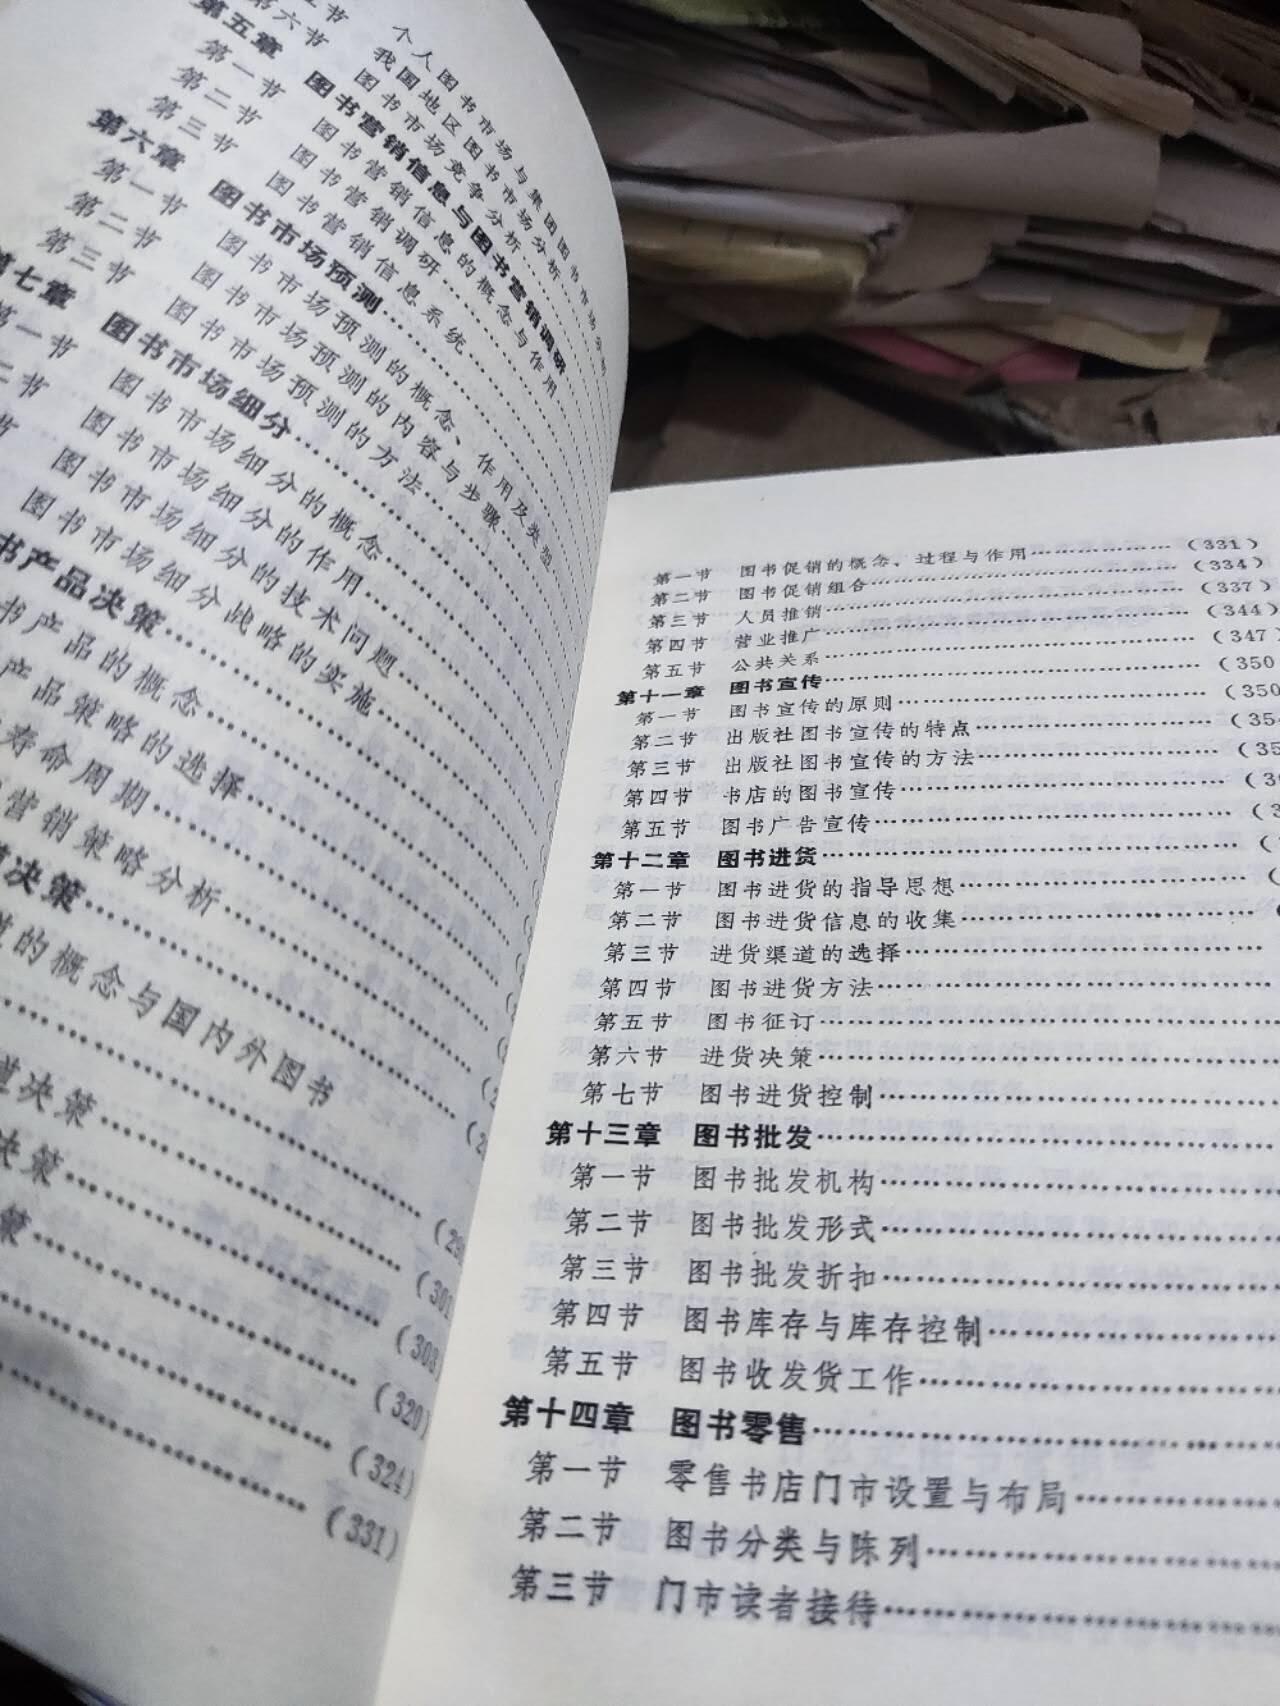 节 个人图书市场与集团图书市场分
第六节 我国地区图书市场分析
节 图书市场竞争分析
第五章 图书营销信息与图书营销调研
第一节 图书营销信息的概念与作用
第二节 图书营销调研
第三节 图书营销信息系统
第六章 图书市场预测
第一节 图书市场预测的概念、作用及类型
第二节 图书市场预测的内容与步骤
第三节 图书市场预测的方法
第七章 图书市场细分
第一节 图书市场细分的概念
二节 图书市场细分的作用
节 图书市场细分的技术问题
图书市场细分战略的实施
书产品决策
书产品的概念
产品策略的选择
寿命周期
营销策略分析
决策
的概念与国内外图书
决策
决策 (295)
策 (301)
(308)
(320)
(324)
(331)
第一节 图书促销的概念、过程与作用 (331)
第二节 图书促销组合 (334)
第三节 人员推销 (337)
第四节 营业推广 (344)
第五节 公共关系 (347)
第十一章 图书宣传 (350
第一节 图书宣传的原则 (350
第二节 出版社图书宣传的特点 (354
第三节 出版社图书宣传的方法 (35
第四节 书店的图书宣传 (3
第五节 图书广告宣传 (3
第十二章 图书进货 (
第一节 图书进货的指导思想 (
第二节 图书进货信息的收集 (
第三节 进货渠道的选择
第四节 图书进货方法
第五节 图书征订
第六节 进货决策
第七节 图书进货控制
第十三章 图书批发
第一节 图书批发机构
第二节 图书批发形式
第三节 图书批发折扣
第四节 图书库存与库存控制
第五节 图书收发货工作
第十四章 图书零售
第一节 零售书店门市设置与布局
第二节 图书分类与陈列
第三节 门市读者接待